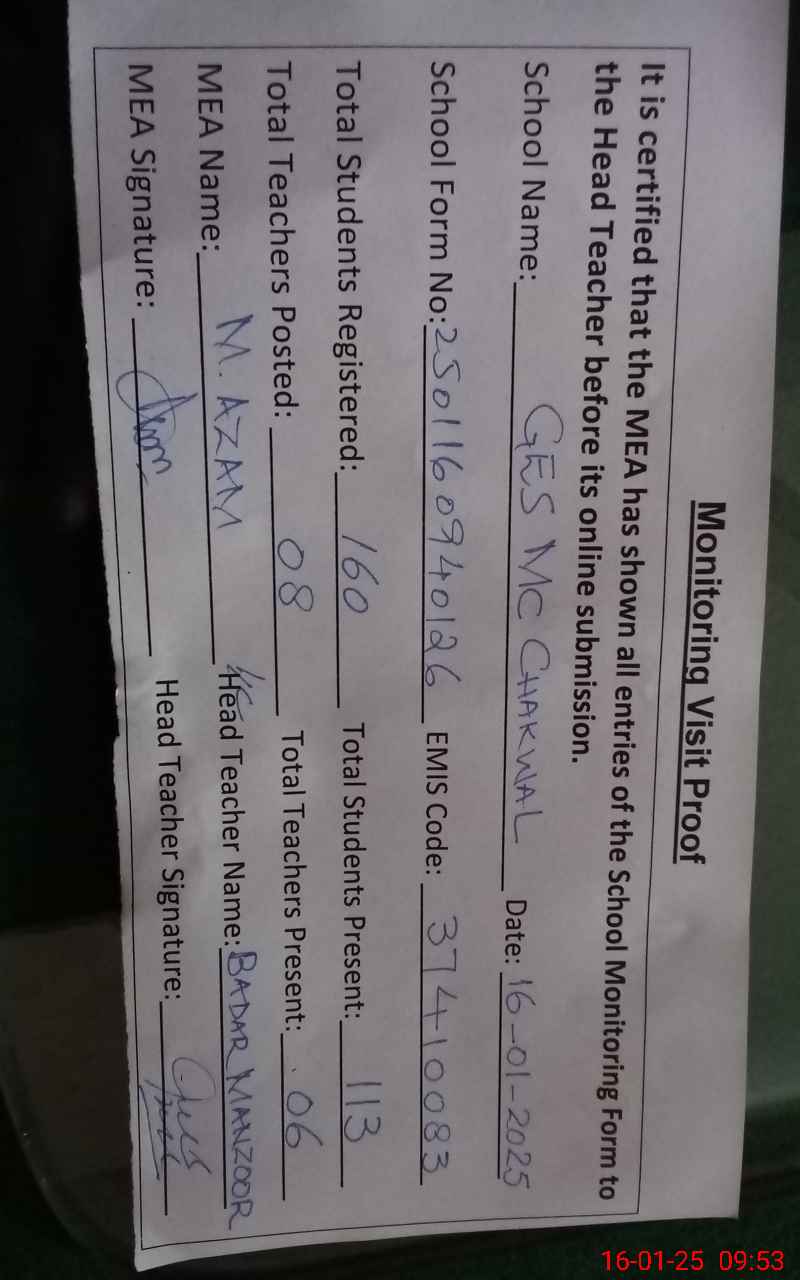 Monitoring Visit Proof
It is certified that the MEA has shown all entries of the School Monitoring Form to
the Head Teacher before its online submission.
School Name: GES MC CHAKWAL Date: 16-01-2025
School Form No: 2501160940126 EMIS Code: 37410083
Total Students Registered: 160 Total Students Present: 113
Total Teachers Posted: 08 Total Teachers Present: 06
MEA Name: M. AZAM Head Teacher Name: BADAR MANZOOR
MEA Signature: Head Teacher Signature:
16-01-25 09:53